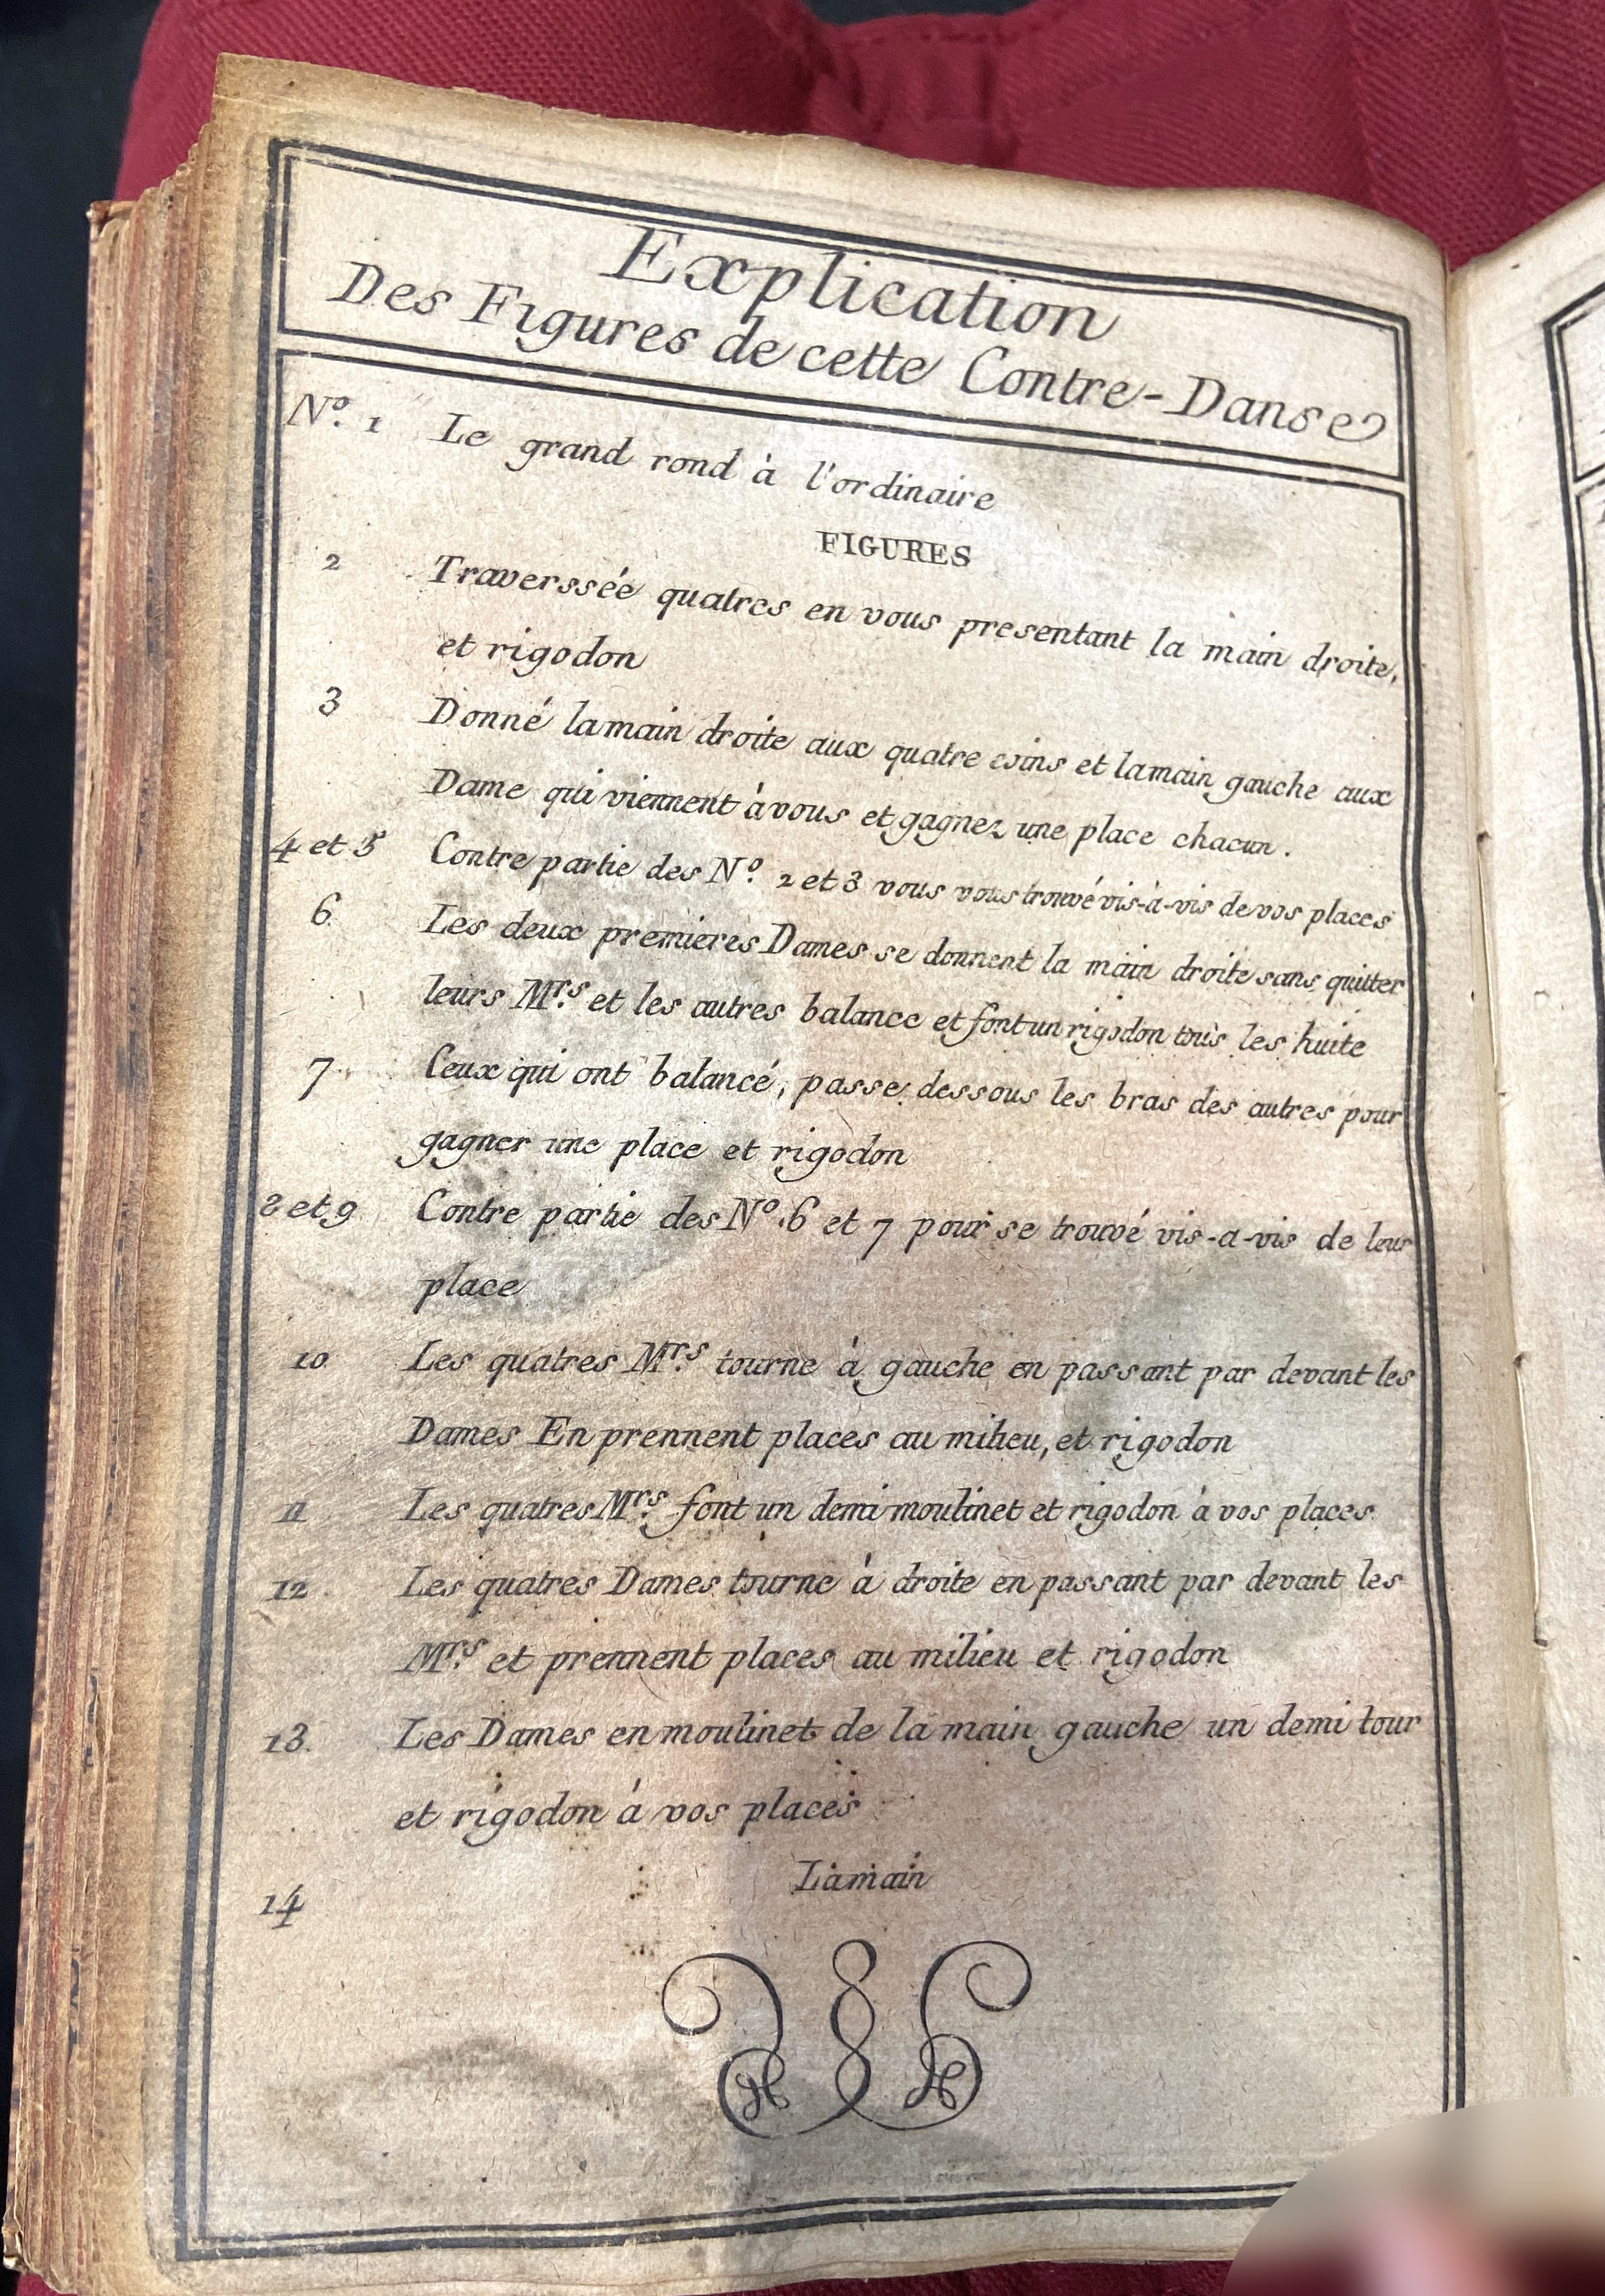 Explication
Des Figures de cette Contre-Danse
N.º 1 Le grand rond à l'ordinaire
FIGURES
2 Traverssée quatres en vous presentant la main droite,
et rigodon
3 Donné lamain droite aux quatre coins et lamain gauche aux
Dame qui viennent à vous et gagnez une place chacun.
4 et 5 Contre partie des N.º 2 et 3 vous vous trouvé vis-à-vis de vos places
6 Les deux premieres Dames se donnent la main droite sans quitter
leurs M.rs et les autres balance et font un rigodon tous les huite
7 Ceux qui ont balancé, passe dessous les bras des autres pour
gagner une place et rigodon
8 et 9 Contre partie des N.º 6 et 7 pour se trouvé vis-a-vis de leur
place
10 Les quatres M.rs tourne à gauche en passant par devant les
Dames En prennent places au milieu, et rigodon
11 Les quatres M.rs font un demi moulinet et rigodon à vos places
12 Les quatres Dames tourne à droite en passant par devant les
M.rs et prennent places au milieu et rigodon
13. Les Dames en moulinet de la main gauche un demi tour
et rigodon à vos places
14 Lamain